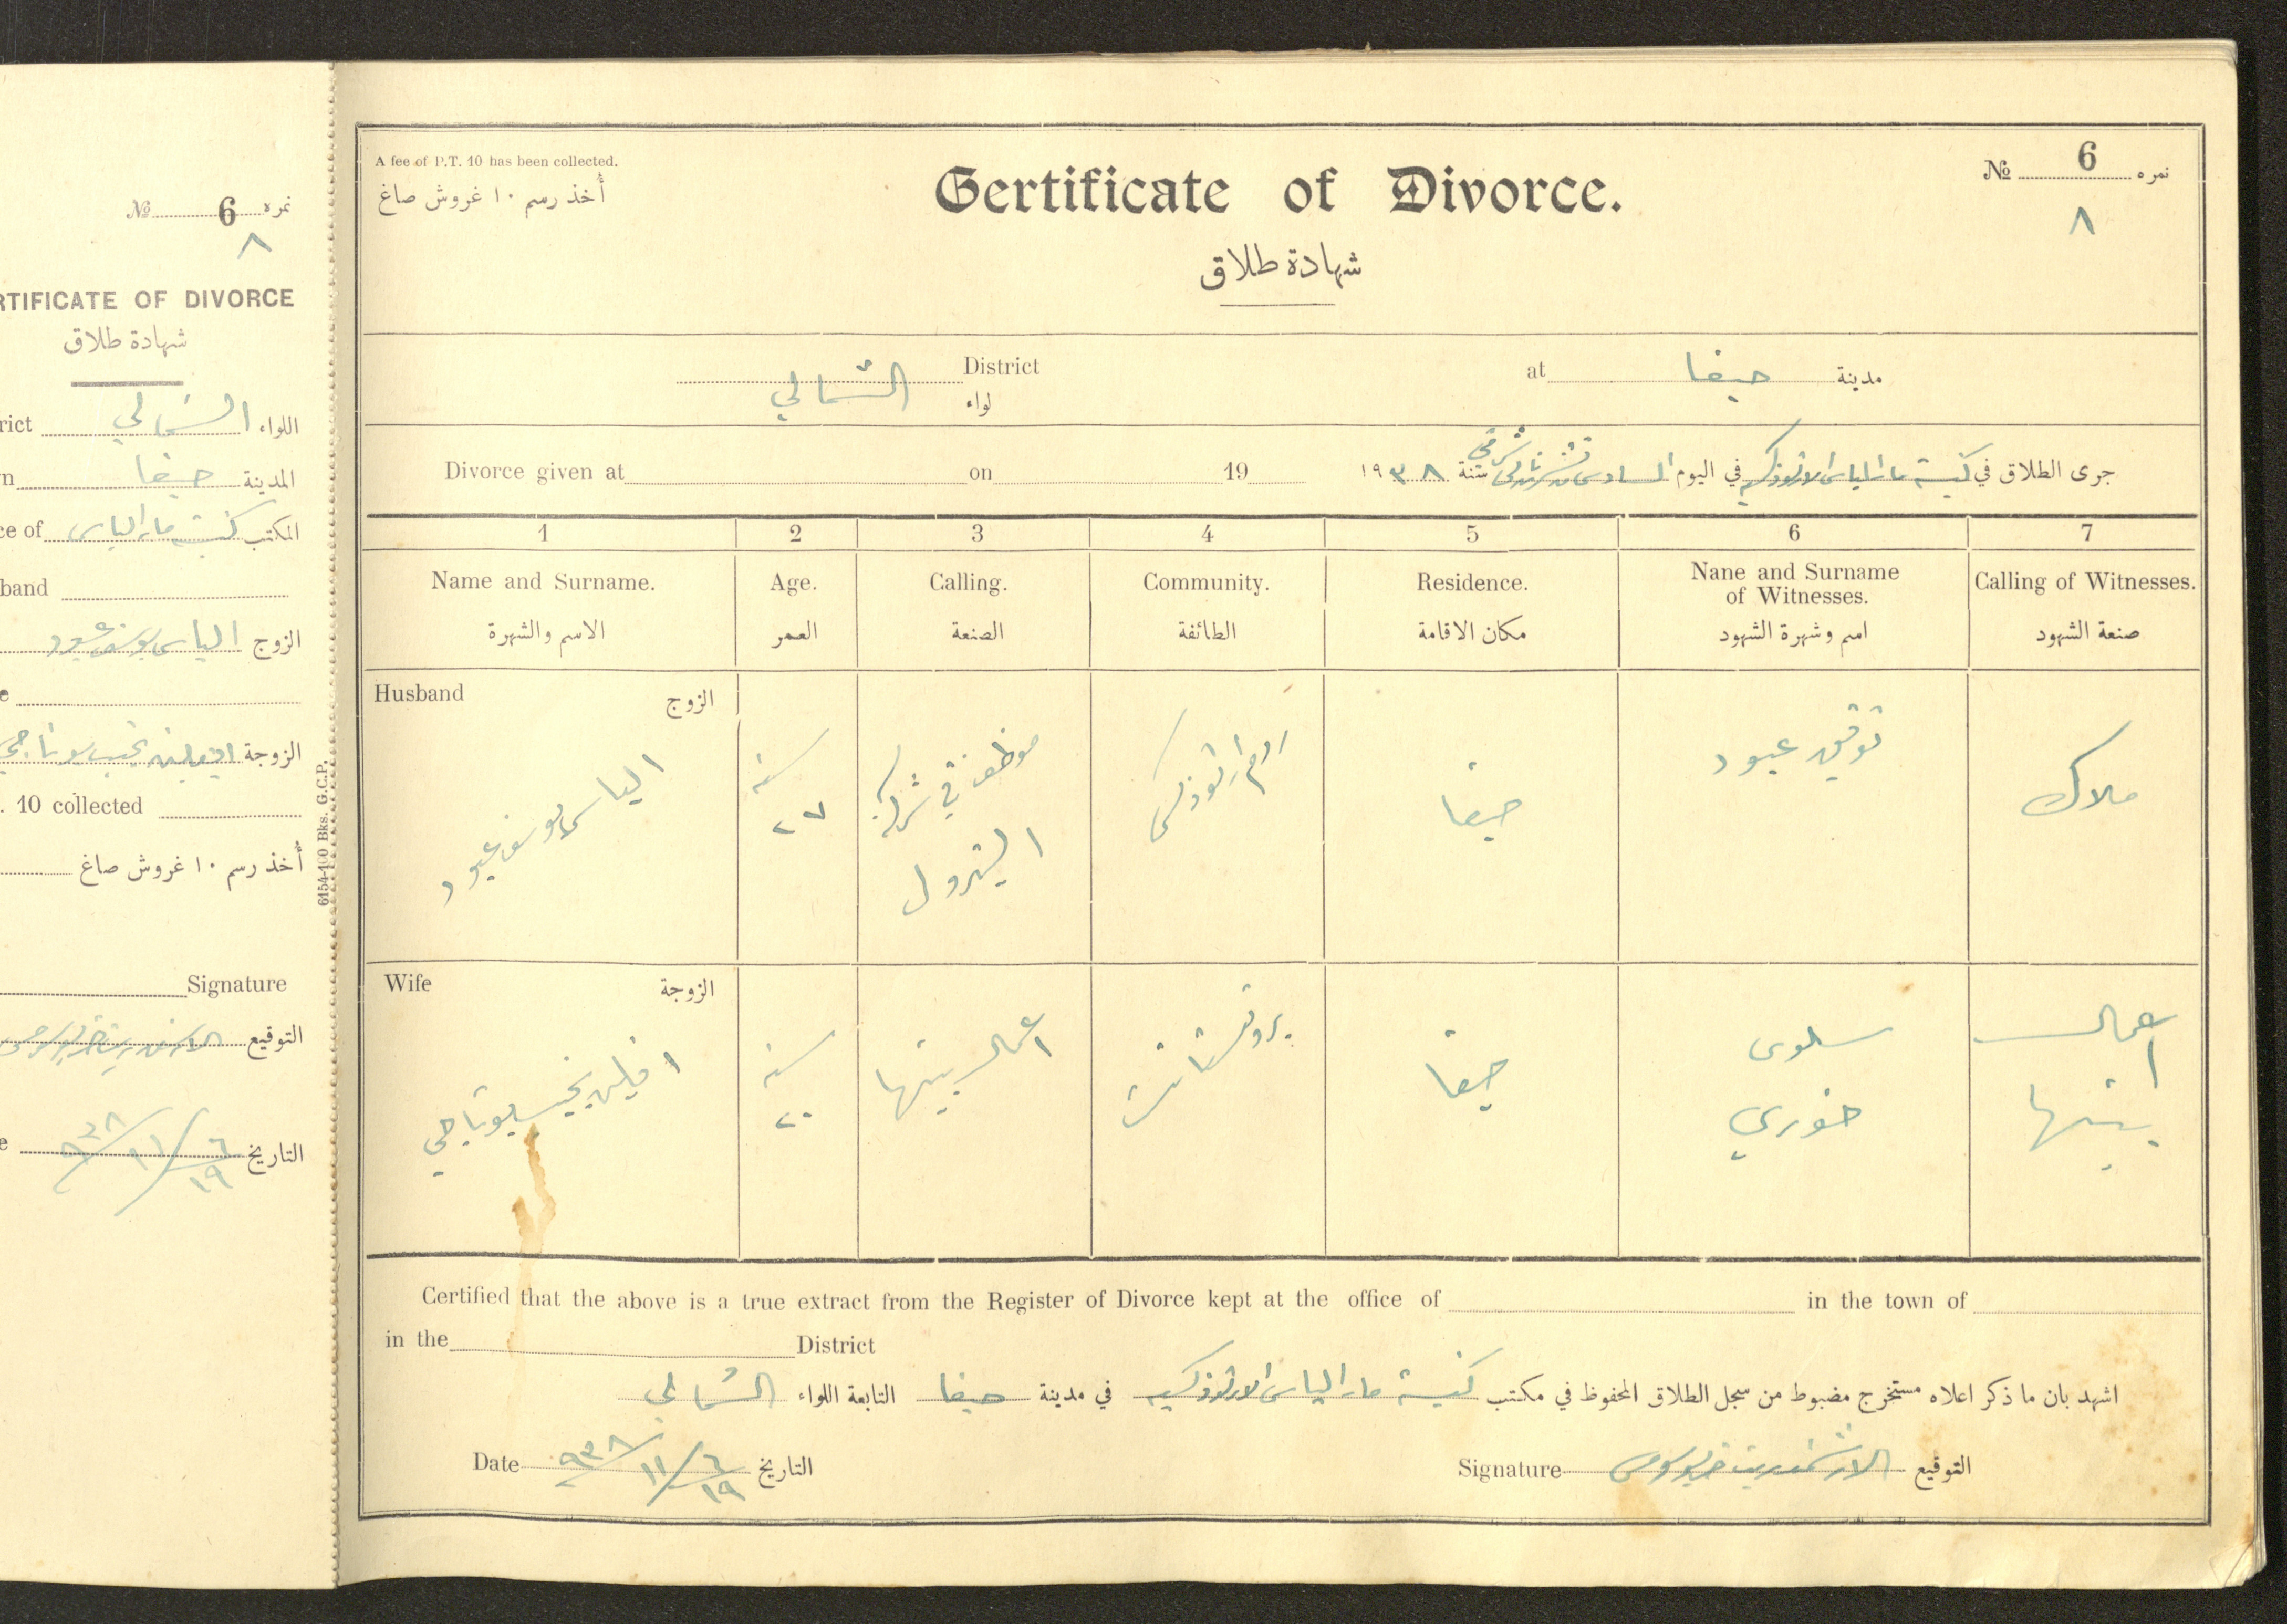 № 6 نمره
٨
RTIFICATE OF DIVORCE
شهادة طلاق
rict الشمالي اللواء
n حيفا المدينة
ce of كنيسة مار الياس المكتب
band
الزوج الياس يوسف عبود
e
الزوجة
. 10 collected
أخذ رسم ١٠ غروش صاغ
Signature
التوقيع
e التاريخ ٦/١٩ /١١/ ٩٣٨
6154-100 Bks. G.C.P.
A fee of P.T. 10 has been collected.
أخذ رسم ١٠ غروش صاغ
Certificate of Divorce.
شهادة طلاق
№ 6 نمره
٨
District الشمالي لواء
at حيفا مدينة
Divorce given at on 19
جرى الطلاق في كنيسة مار الياس الارثوذكسيه في اليوم السادس تشرين ثاني شرقي سنة ١٩٣٨
1 2 3 4 5 6 7
Name and Surname. Age. Calling. Community. Residence. Nane and Surname of Witnesses. Calling of Witnesses.
الاسم والشهرة العمر الصنعة الطائفة مكان الاقامة اسم وشهرة الشهود صنعة الشهود
Husband الزوج
الياس يوسف عبود
سنة
٢٧
موظف في شركة
البترول
الروم ارثوذكس
حيفا
توفيق عبود
ملاك
Wife الزوجة
سنة
٢٠
اعمال بيتها
بروتستانت
حيفا
سلوى
خوري
اعمال
بيتها
Certified that the above is a true extract from the Register of Divorce kept at the office of in the town of
in the District
اشهد بان ما ذكر اعلاه مستخرج مضبوط من سجل الطلاق المحفوظ في مكتب كنيسة مار الياس الارثوذكسيه في مدينة حيفا التابعة اللواء الشمالي
Date ٦/١٩ /١١/ ٩٣٨ التاريخ
Signature الارشمندريت التوقيع